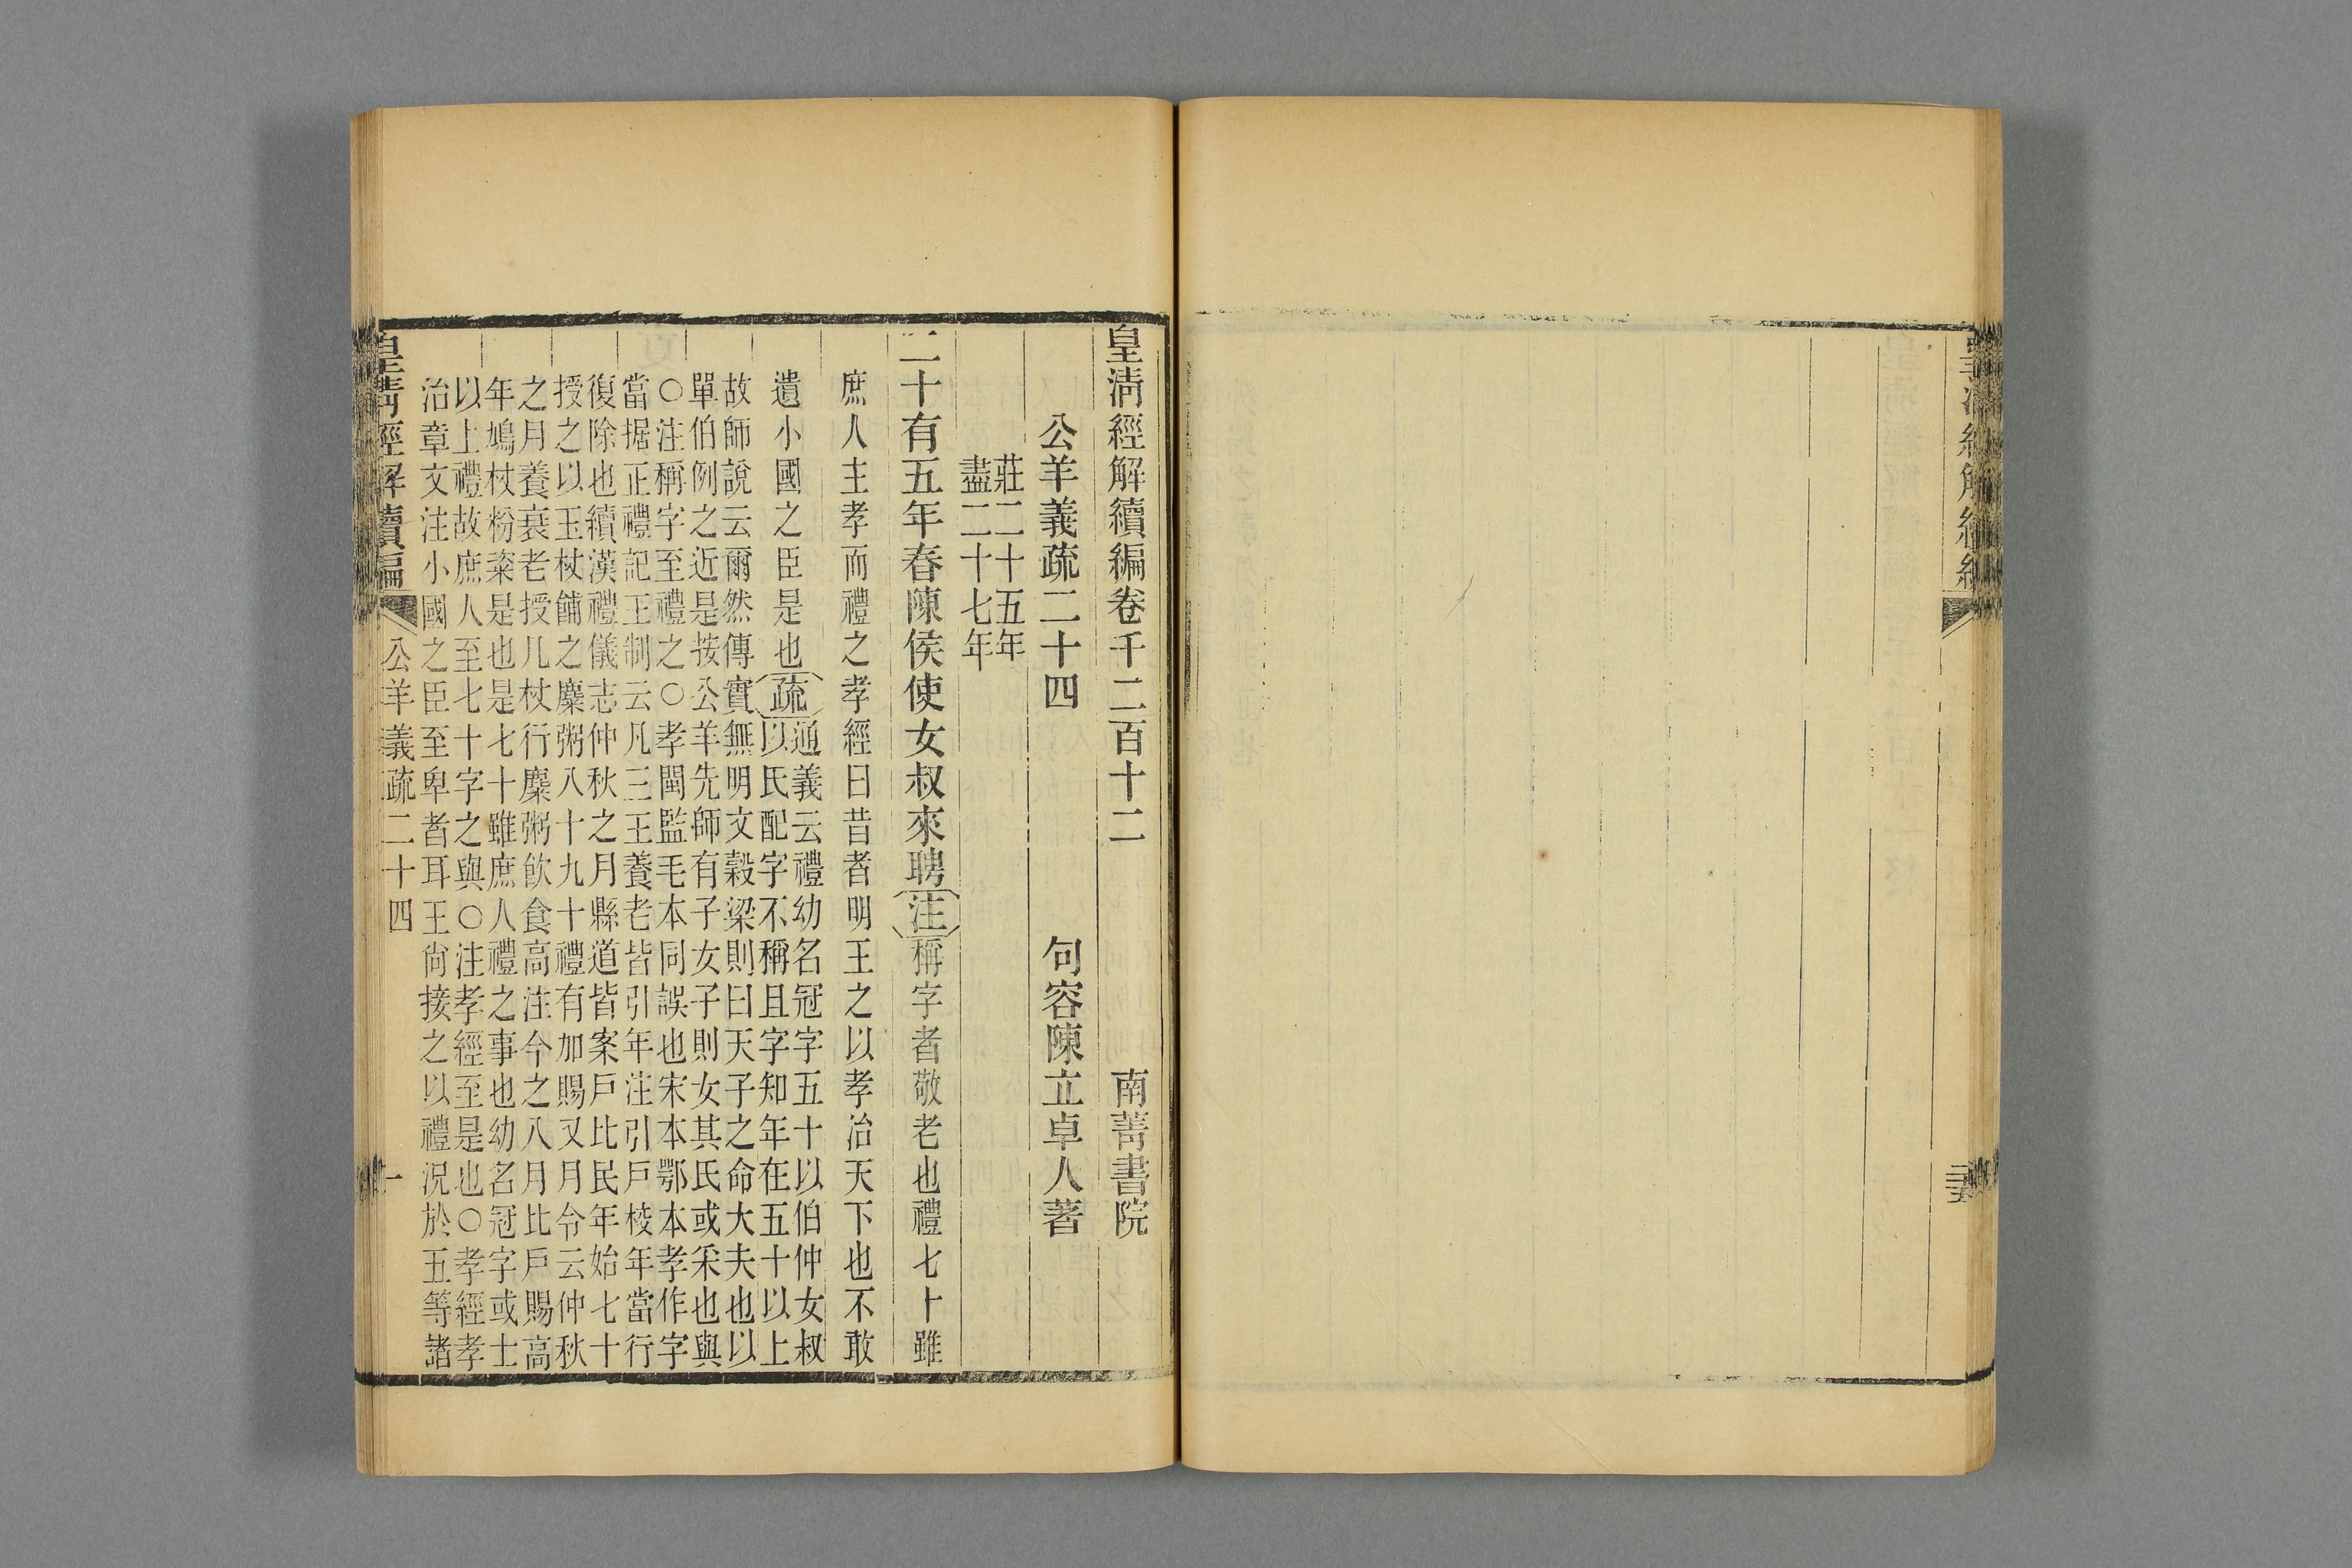 皇清經解續編
皇清經解續編卷千二百十二　南菁書院
公羊義疏二十四　句容陳立卓人著
莊二十五年
盡二十七年
二十有五年春陳侯使女叔來聘注稱字者敬老也禮七十雖
庶人主孝而禮之孝經曰昔者明王之以孝治天下也不敢
遺小國之臣是也疏
通義云禮幼名冠字五十以伯仲女叔
以氏配字不稱且字知年在五十以上
故師說云爾然傳實無明文穀梁則曰天子之命大夫也以
單伯例之近是按公羊先師有子女子則女其氏或采也與
○注稱字至禮之○孝閩監毛本同誤也宋本鄂本孝作字
當据正禮記王制云凡三王養老皆引年注引戶棱年當行
復除也續漢禮儀志仲秋之月縣道皆案戶比民年始七十
授之以玉杖餔之麋粥八十九十禮有加賜又月令云仲秋
之月養衰老授几杖行麋粥飲食高注今之八月比戶賜高
年鳩杖粉粢是也是七十雖庶人禮之事也幼名冠字或士
以上禮故庶人至七十字之與○注孝經至是也○孝經孝
治章文注小國之臣至卑者耳王尙接之以禮況於五等諸
皇清經解續編　公羊義疏二十四　一